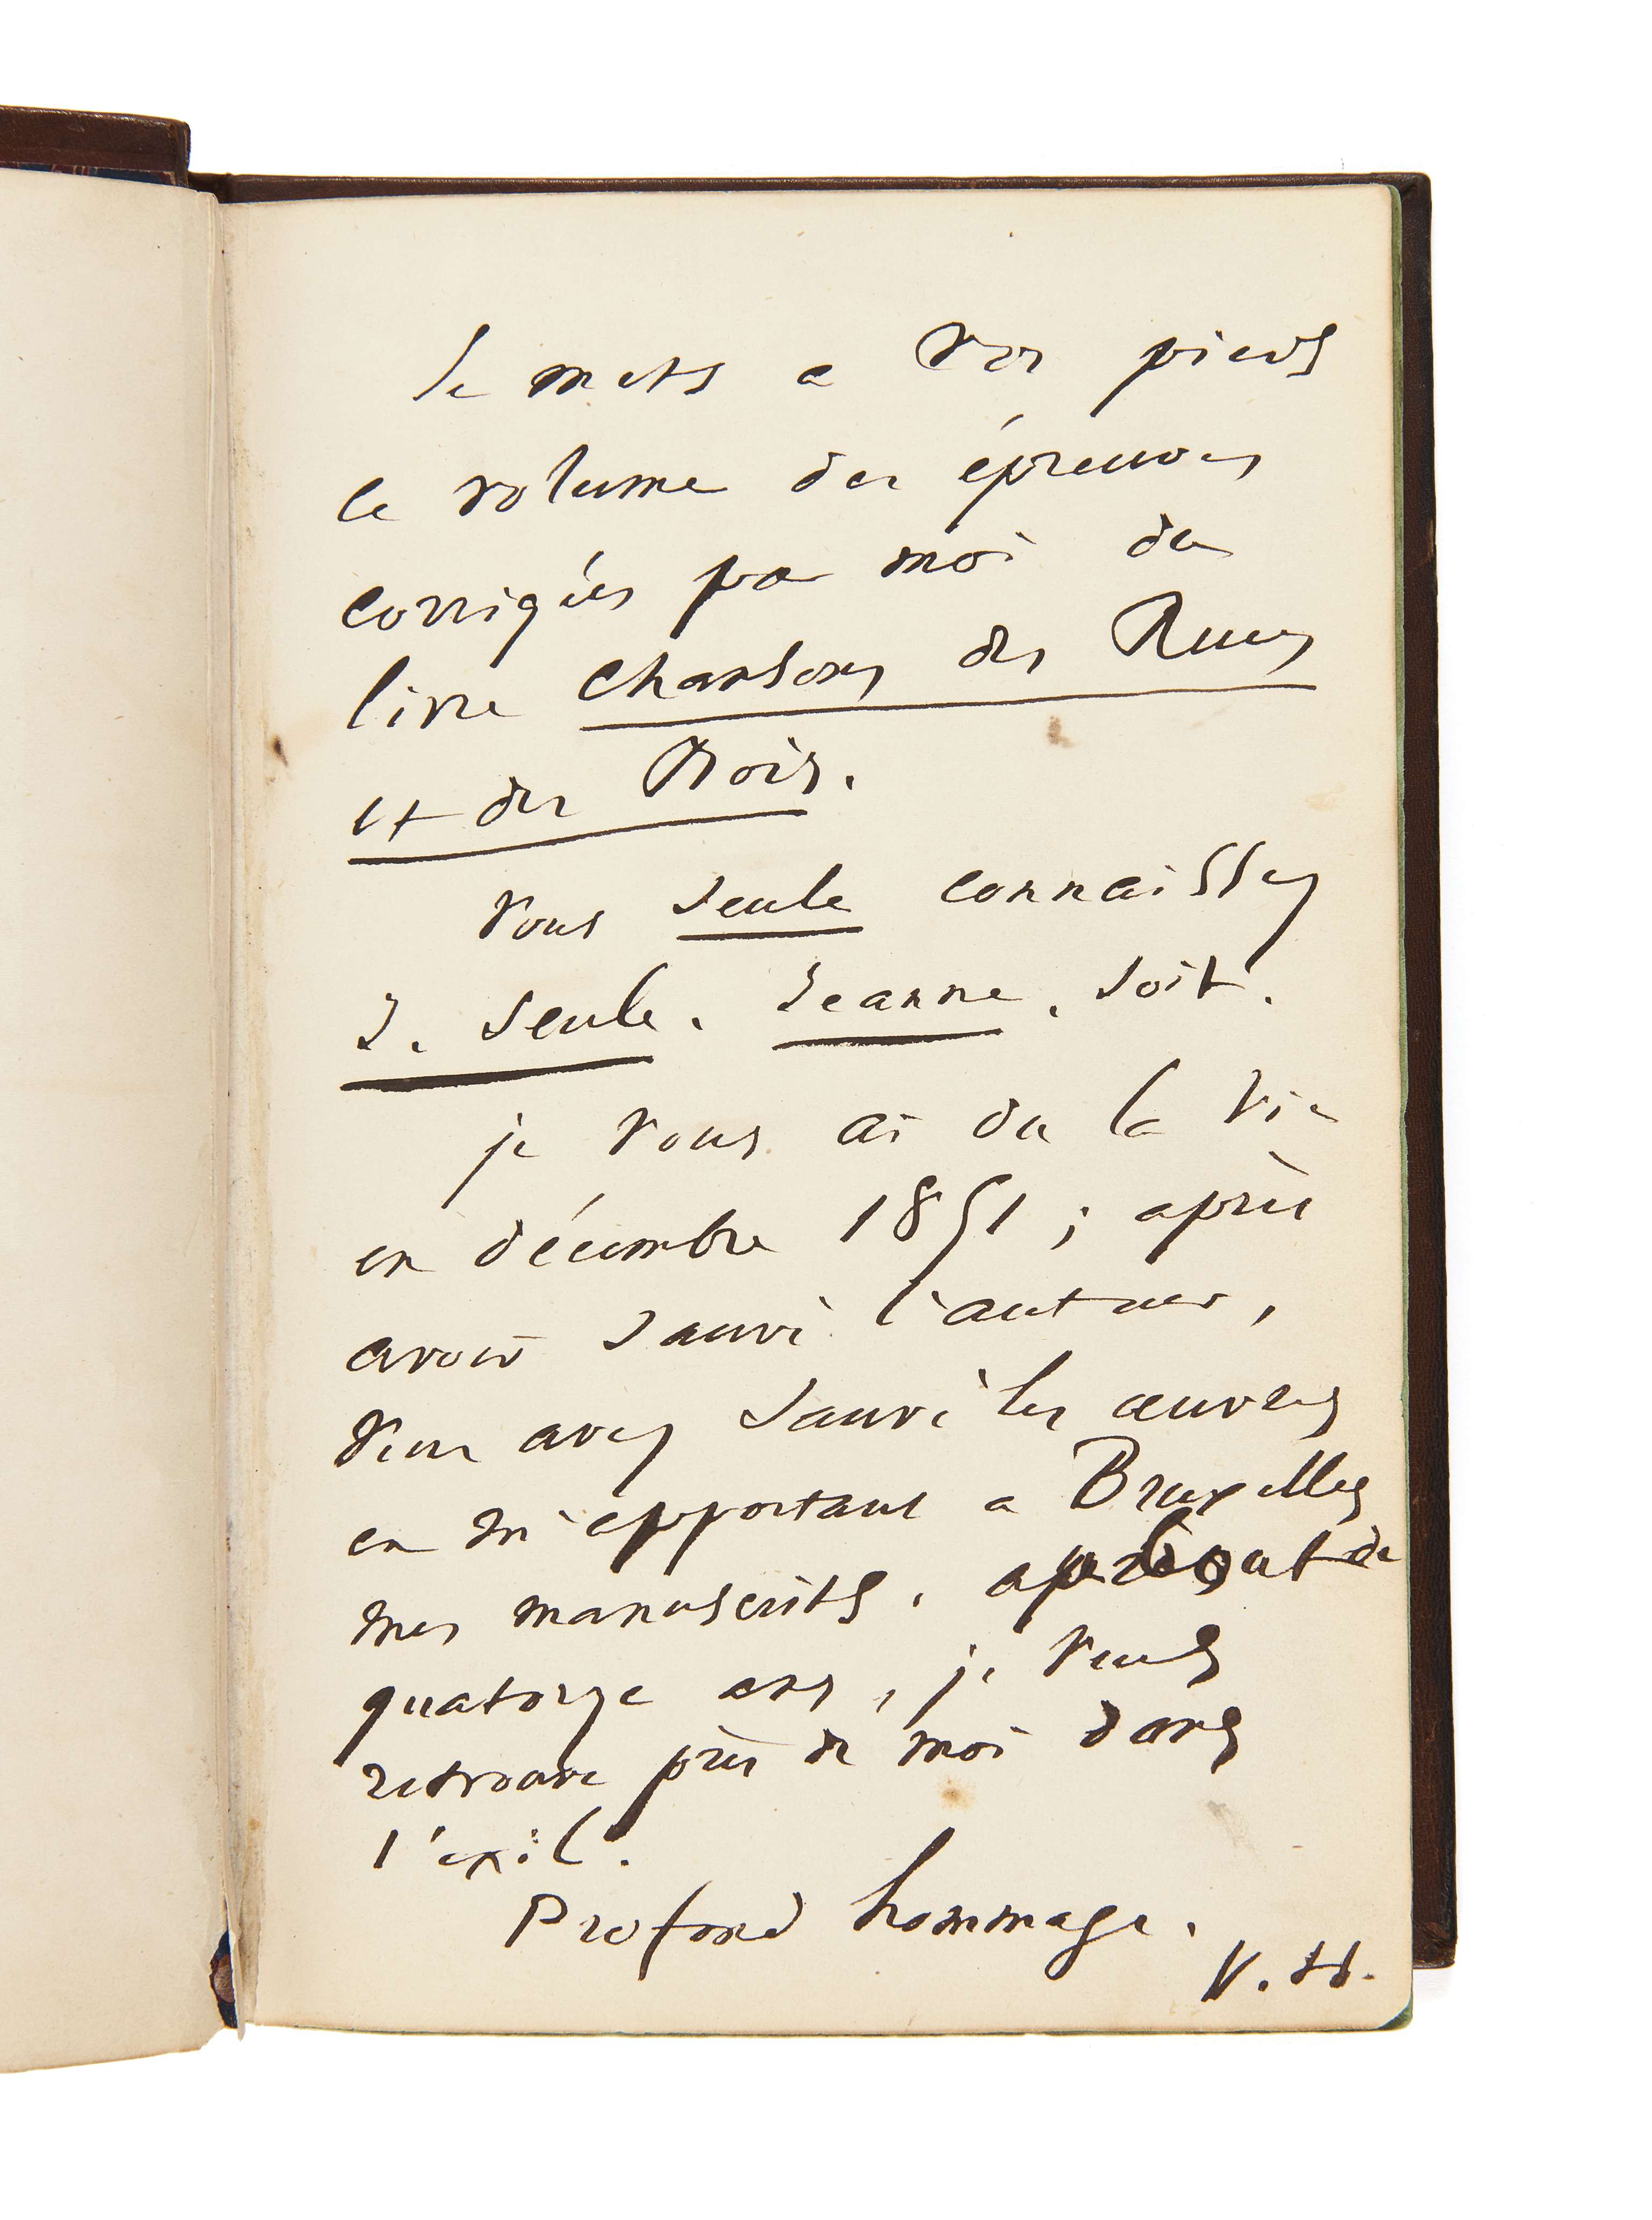 Je mets a vos pieds
ce volume des épreuves
corrigées par moi du
livre Chansons des Rues
et des Bois.
Vous seule connaissez
J. seule. Jeanne. soit.
je vous ai du la vie
en décembre 1851 ; après
avoir sauvé l'auteur,
vous avez sauvé les œuvres
en m'apportant a Bruxelles
mes manuscrits. bout de
quatorze ans, je vous
retrouve près de moi dans
l'exil.
Profond hommage.
V. H.